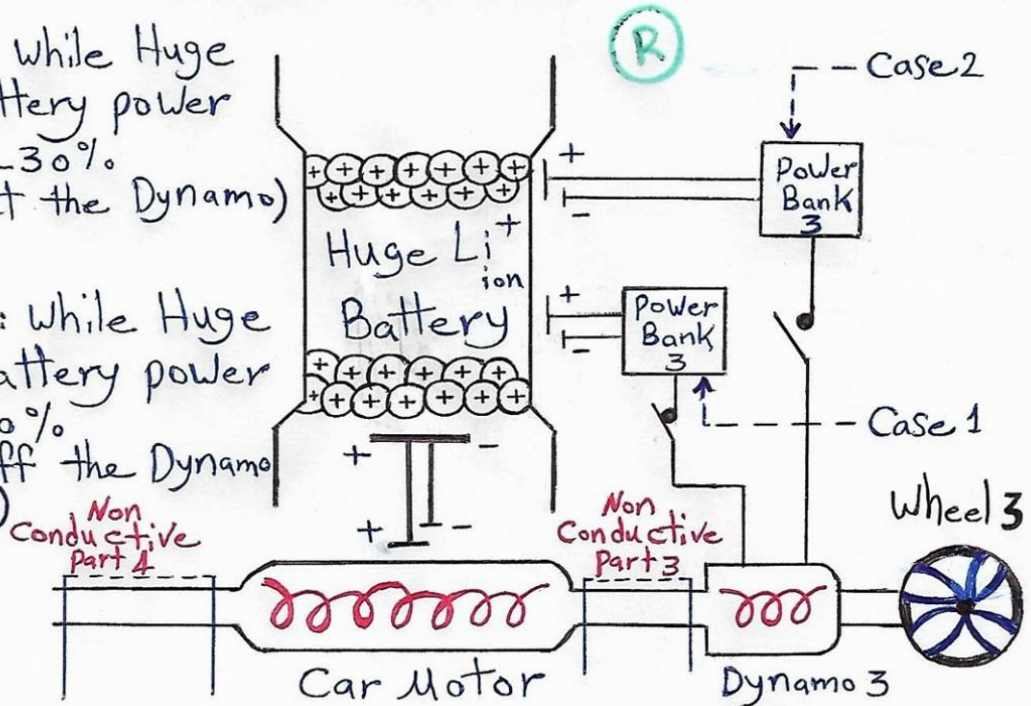 while Huge
ttery power
-30%
t the Dynamo)
: while Huge
attery power
0%
ff the Dynamo
)
R
Case 2
+
-
Power
Bank
3
+ + + + + + +
+ + + + +
Huge Li+
ion
Battery
+
-
Power
Bank
3
Case 1
+ + + + + +
+ + + + + + +
+ -
+ -
Non
Conductive
Part 4
Non
Conductive
Part 3
Wheel 3
Car Motor
Dynamo 3